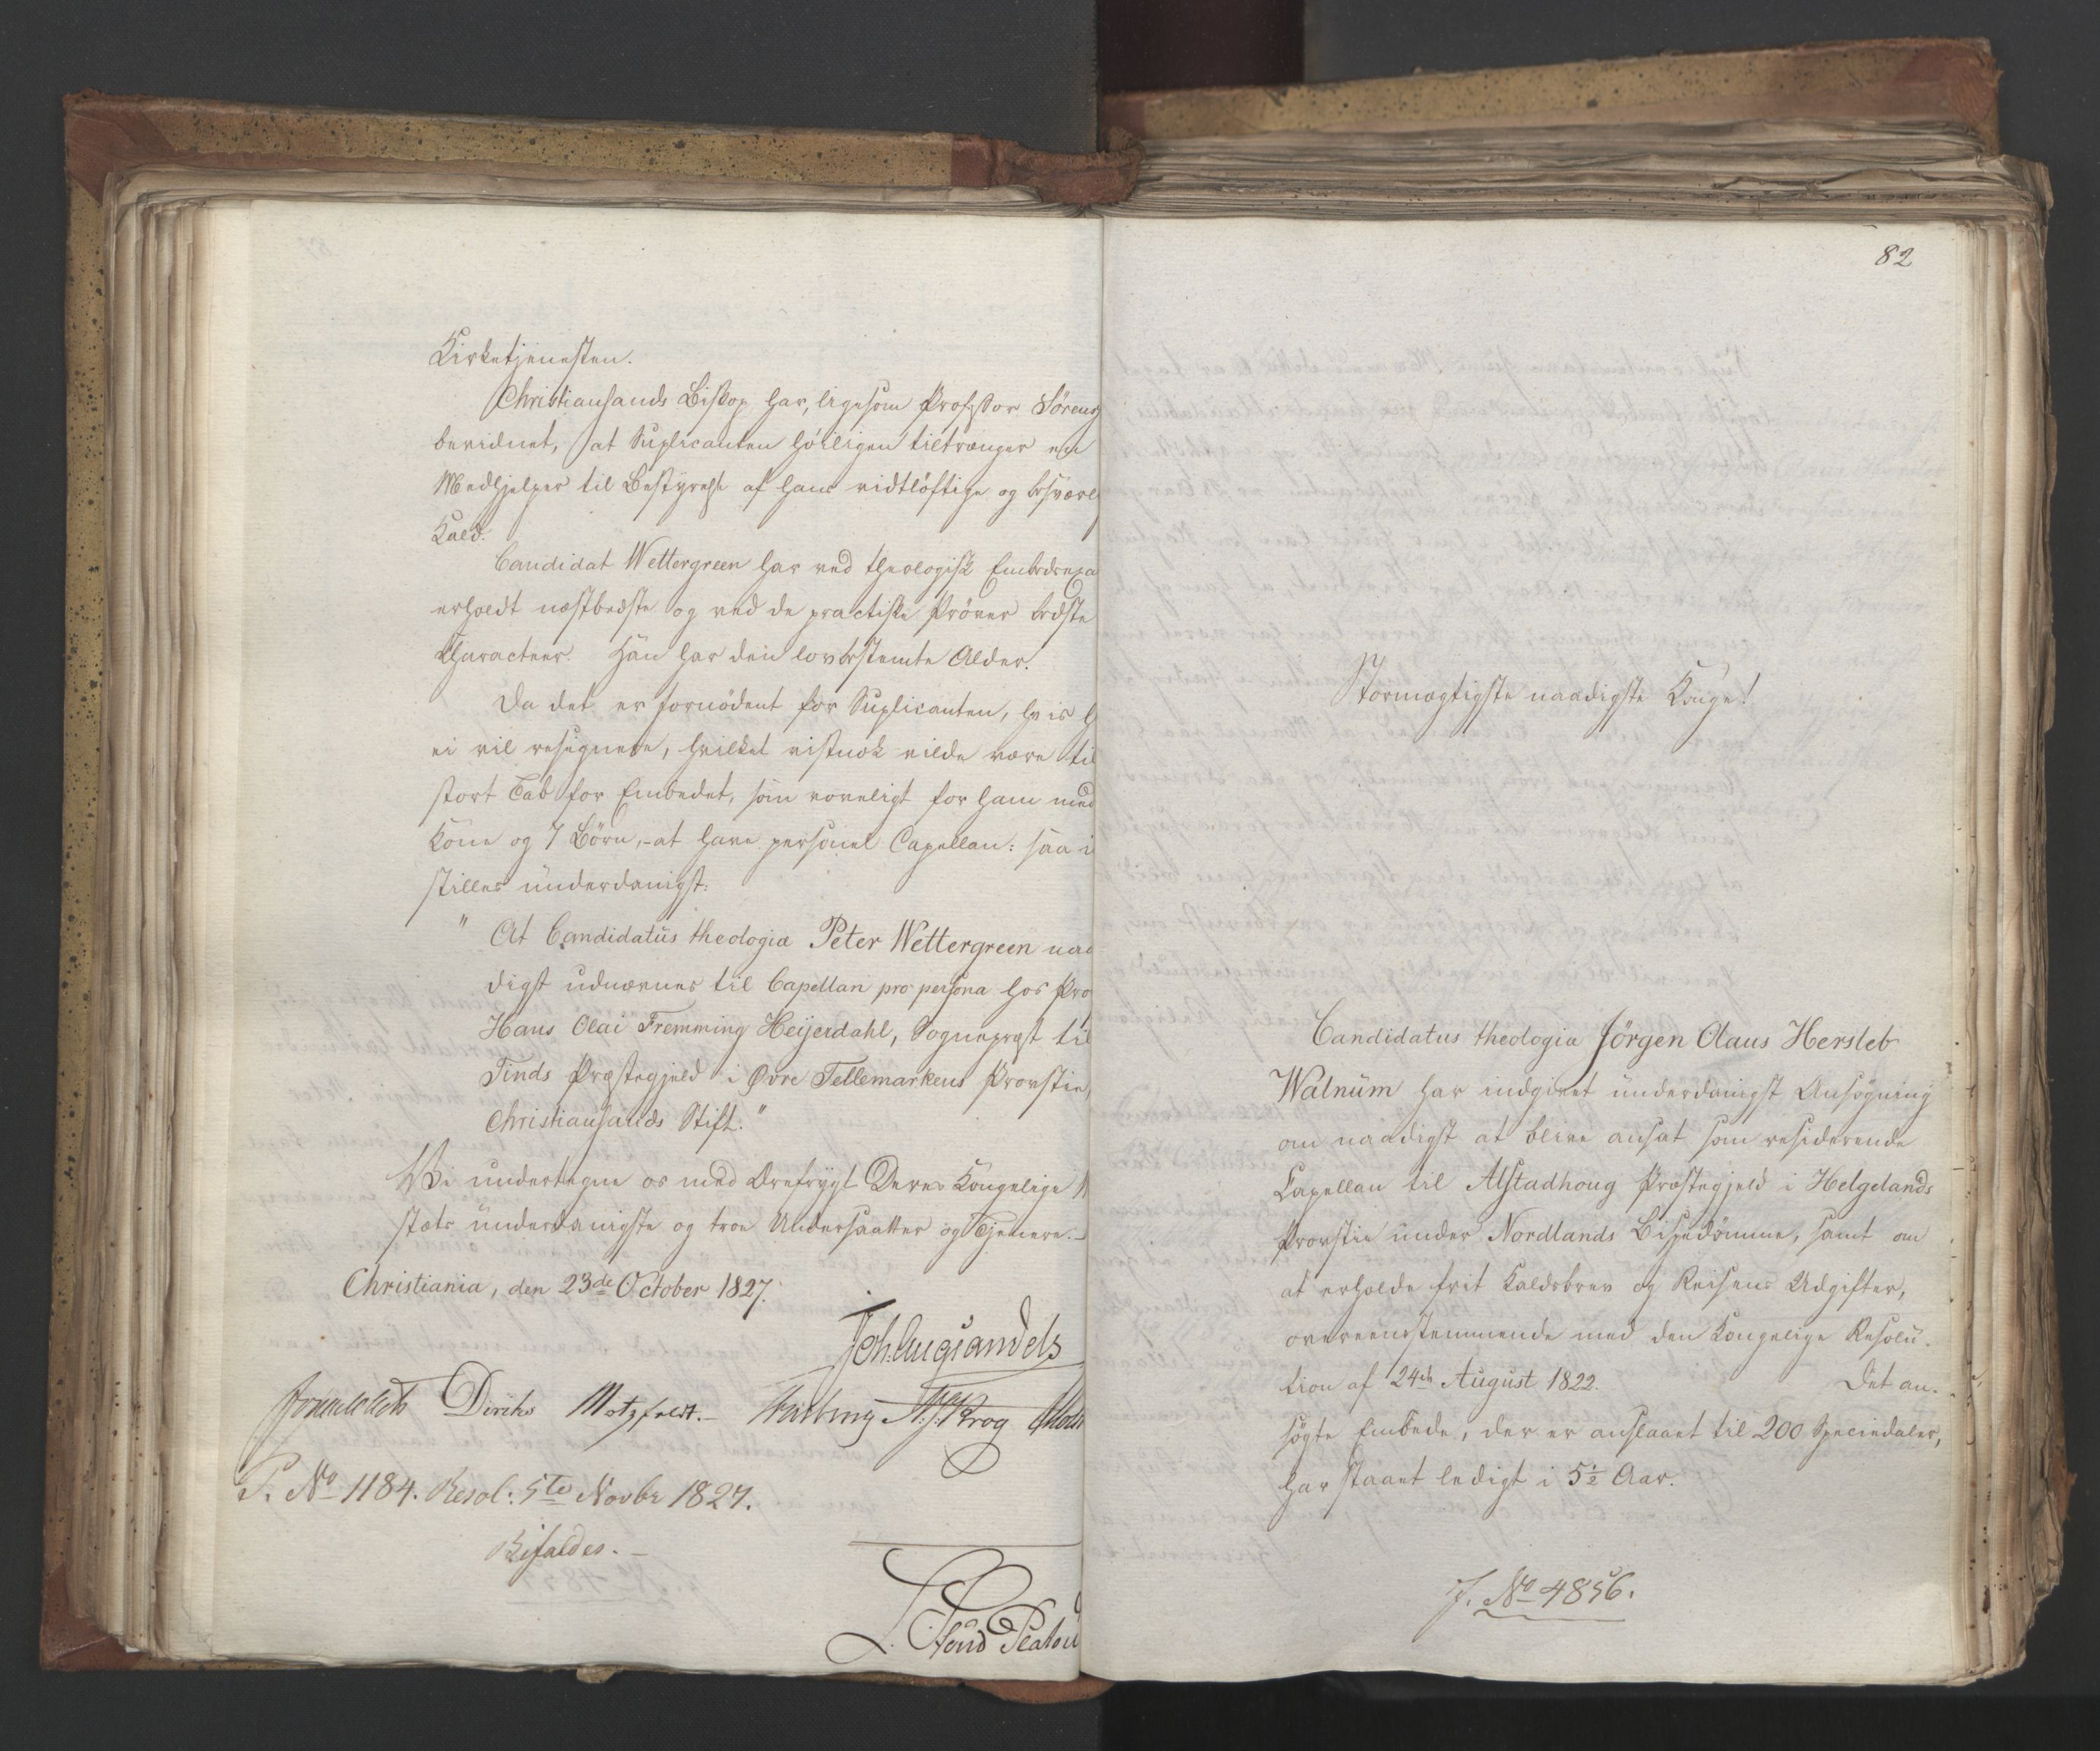 Kirketjenesten.
Christiansands Biskop har, ligesom Professor Sörens
bevidnet, at Suplicanten höiligen tiltrænger en
Medhjelper til Bestyrelse af hans vidtlöftige og besværl
Kald.
Candidat Wettergreen har ved theologisk Embedsexa
erholdt næstbedste og ved de practiske Pröver bedste
Characteer. Han har den lovbestemte Alder.
Da det er fornödent for Suplicanten, hvis h
ei vil resignere, hvilket vistnok vilde være til
stort Tab for Embedet, som voveligt for ham med
Kone og 7 Börn, - at have personel Capellan: saa i
stilles underdanigst:
" At Candidatus theologiæ Peter Wettergreen naa
digst udnævnes til Capellan pro persona hos Pro
Hans Olai Fremming Heijerdahl, Sognepræst til
Tinds Præstegjeld i Øvre Tellemarkens Provstie,
Christiansands Stift."
Vi undertegne os med Ærefrygt Deres Kongelige M
stæts underdanigste og troe Undersaatter og Tjenere. -
Christiania, den 23de October 1827.
Joh. Aug Sandels
Diriks Motzfeldt. - N. J. Krog
P. No 1184. Resol: 5te Novbr 1827.
Bifaldes. -
82
Stormægtigste naadigste Konge!
Candidatus theologia Jörgen Olaus Hersleb
Walnum har indgivet underdanigst Ansögning
om naadigst at blive ansat som residerende
Capellan til Alstadhoug Præstegjeld i Helgelands
Provstie under Nordlands Bispedömme, samt om
at erholde frit Kaldsbrev og Reisens Udgifter,
overeensstemmende med den Kongelige Resolu-
tion af 24de August 1822. Det an-
sögte Embede, der er anslaaet til 200 Speciedaler,
har staaet ledigt i 5½ Aar.
J. No 4856.